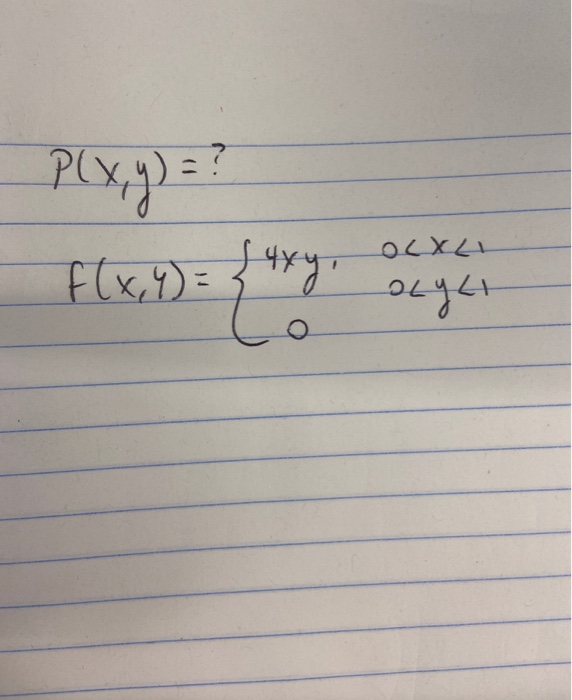 P(x,y) = ?
f(x,y) = { 4xy, 0<x<1
0<y<1
0